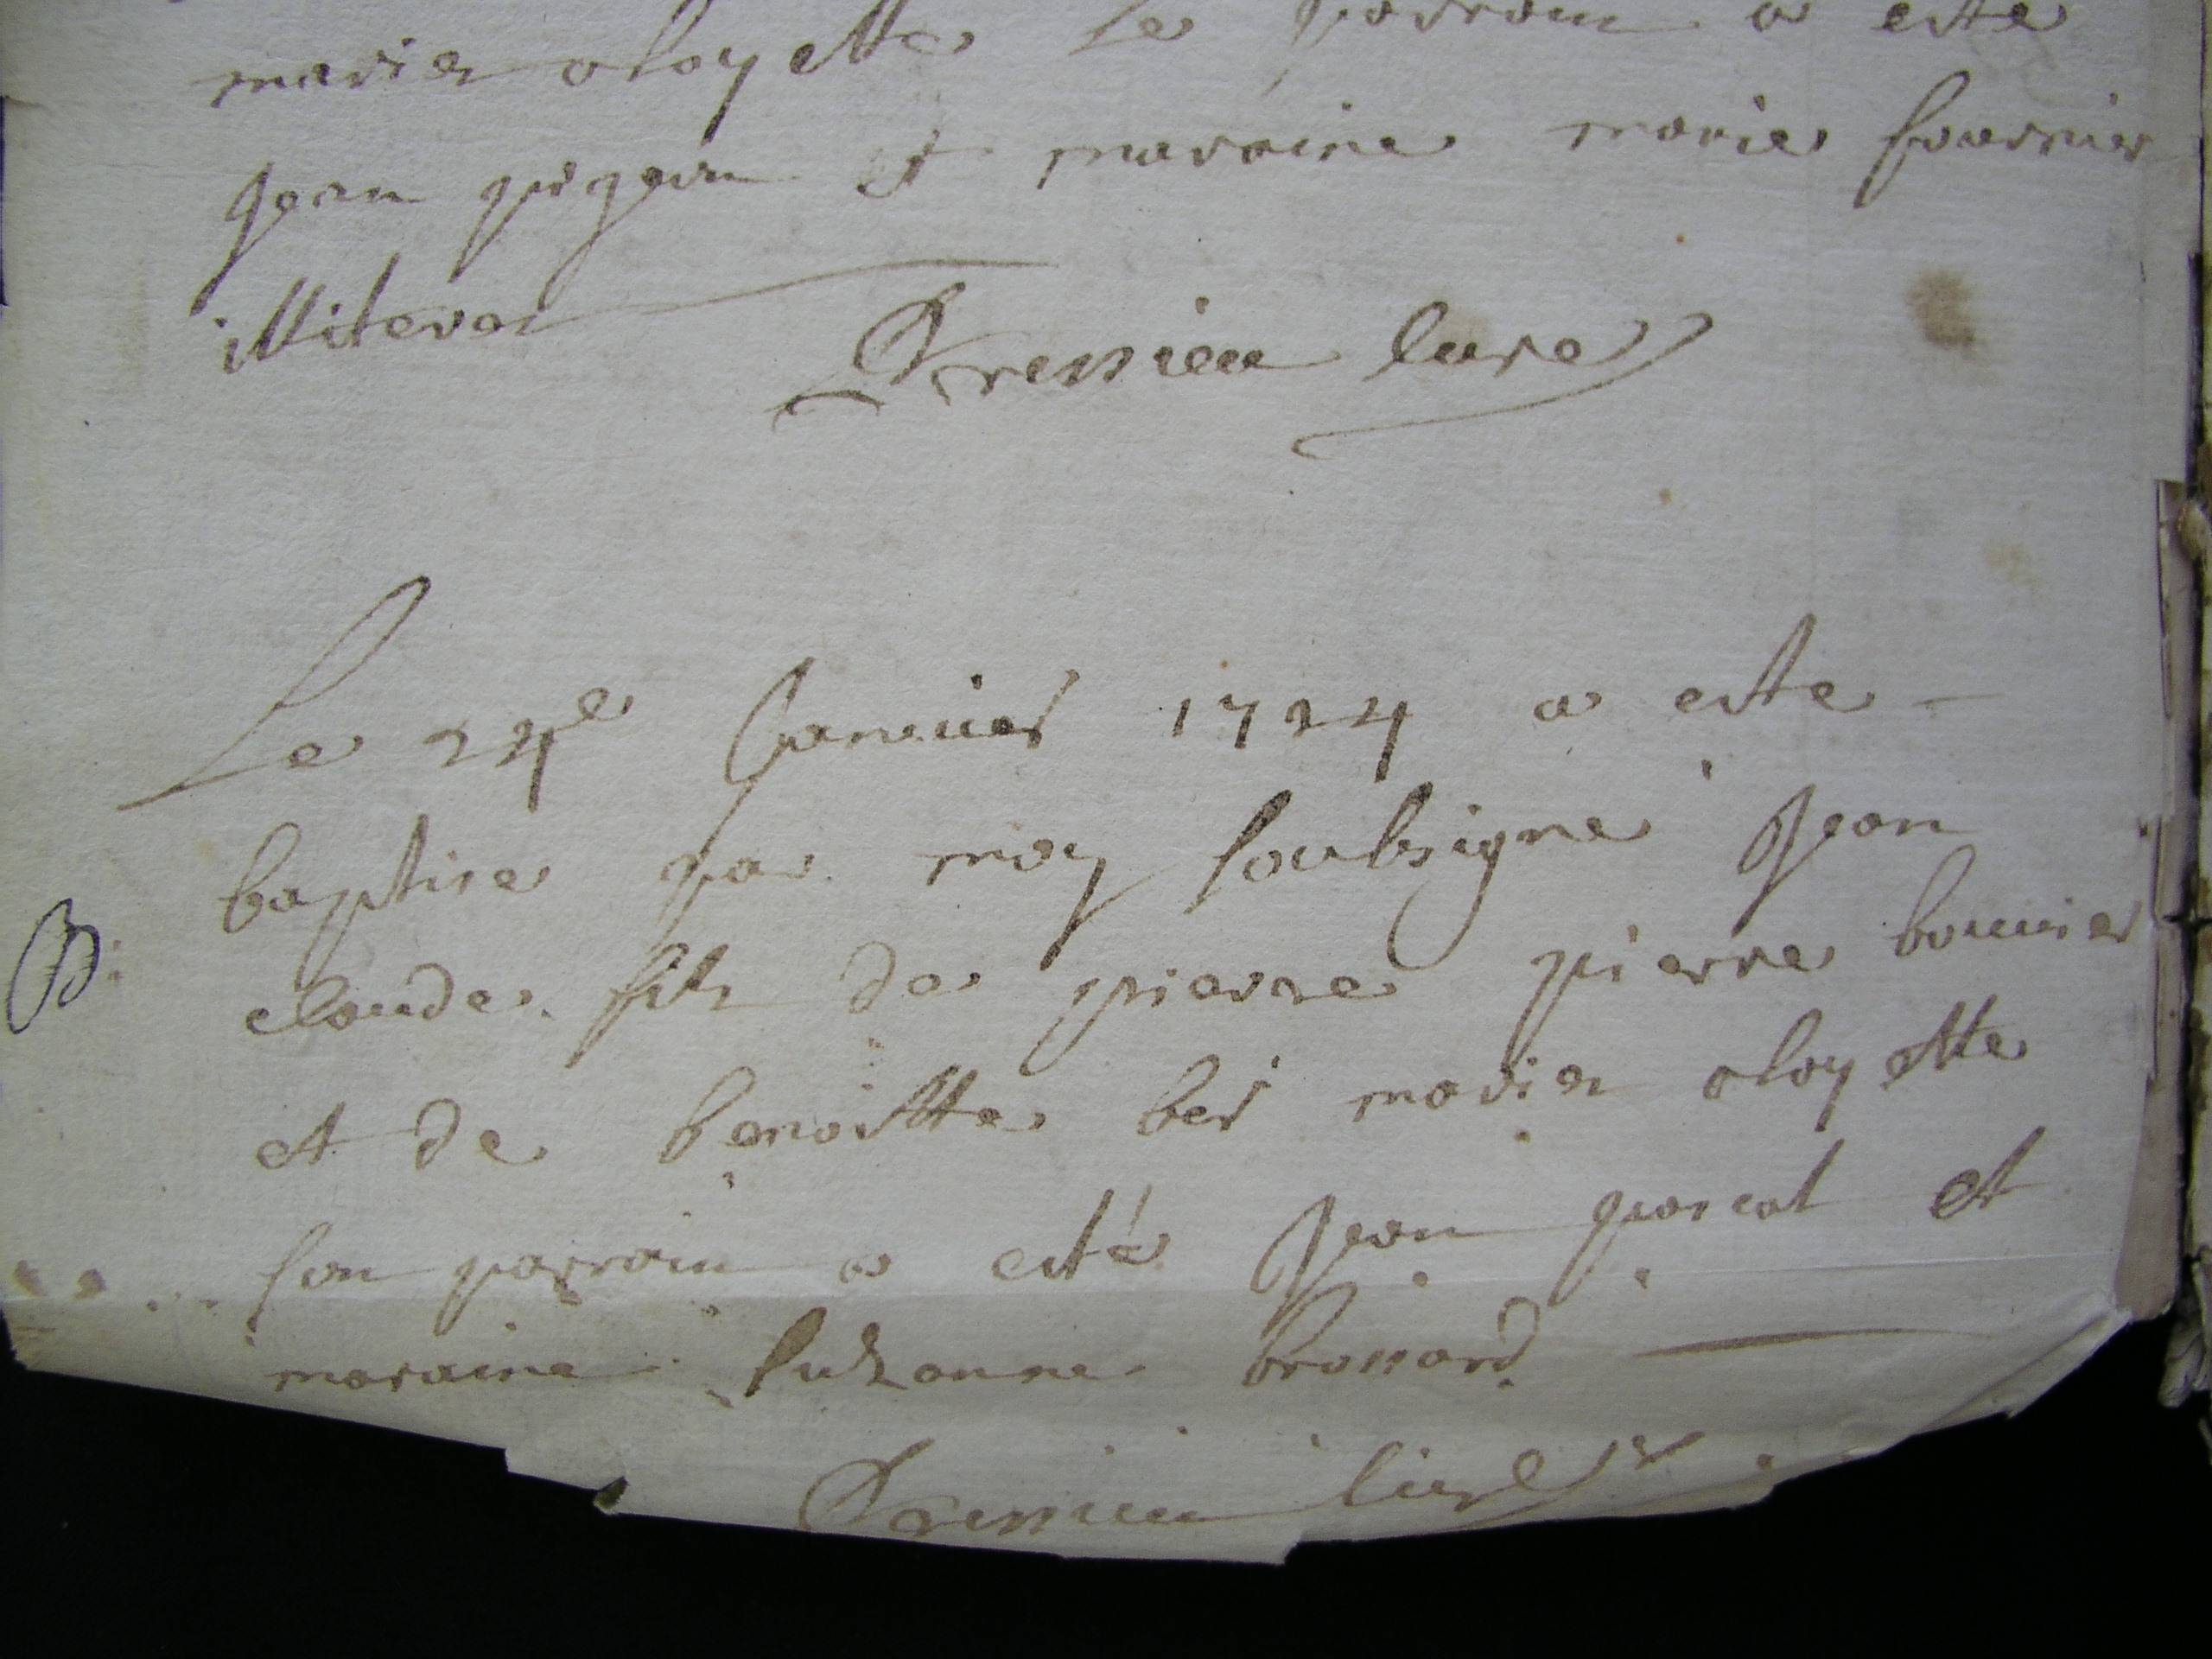 mariés a loyette le parrain a esté
Jean pigeon et maraine marie fournier
illiteres
Dressieu Curé
Le 24e Januier 1724 a esté -
baptisé par moy soubsigné Jean
B.
claude fils de pierre pierre bouuier
et de benoitte ber mariés a loyette
son parrain a esté Jean pascal et
maraine suzanne brossard
Dressieu Curé